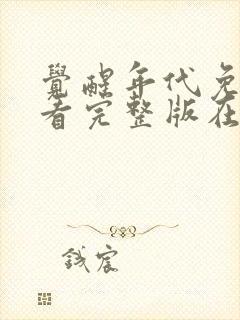 覺醒年代免
看完整版在
钱宸